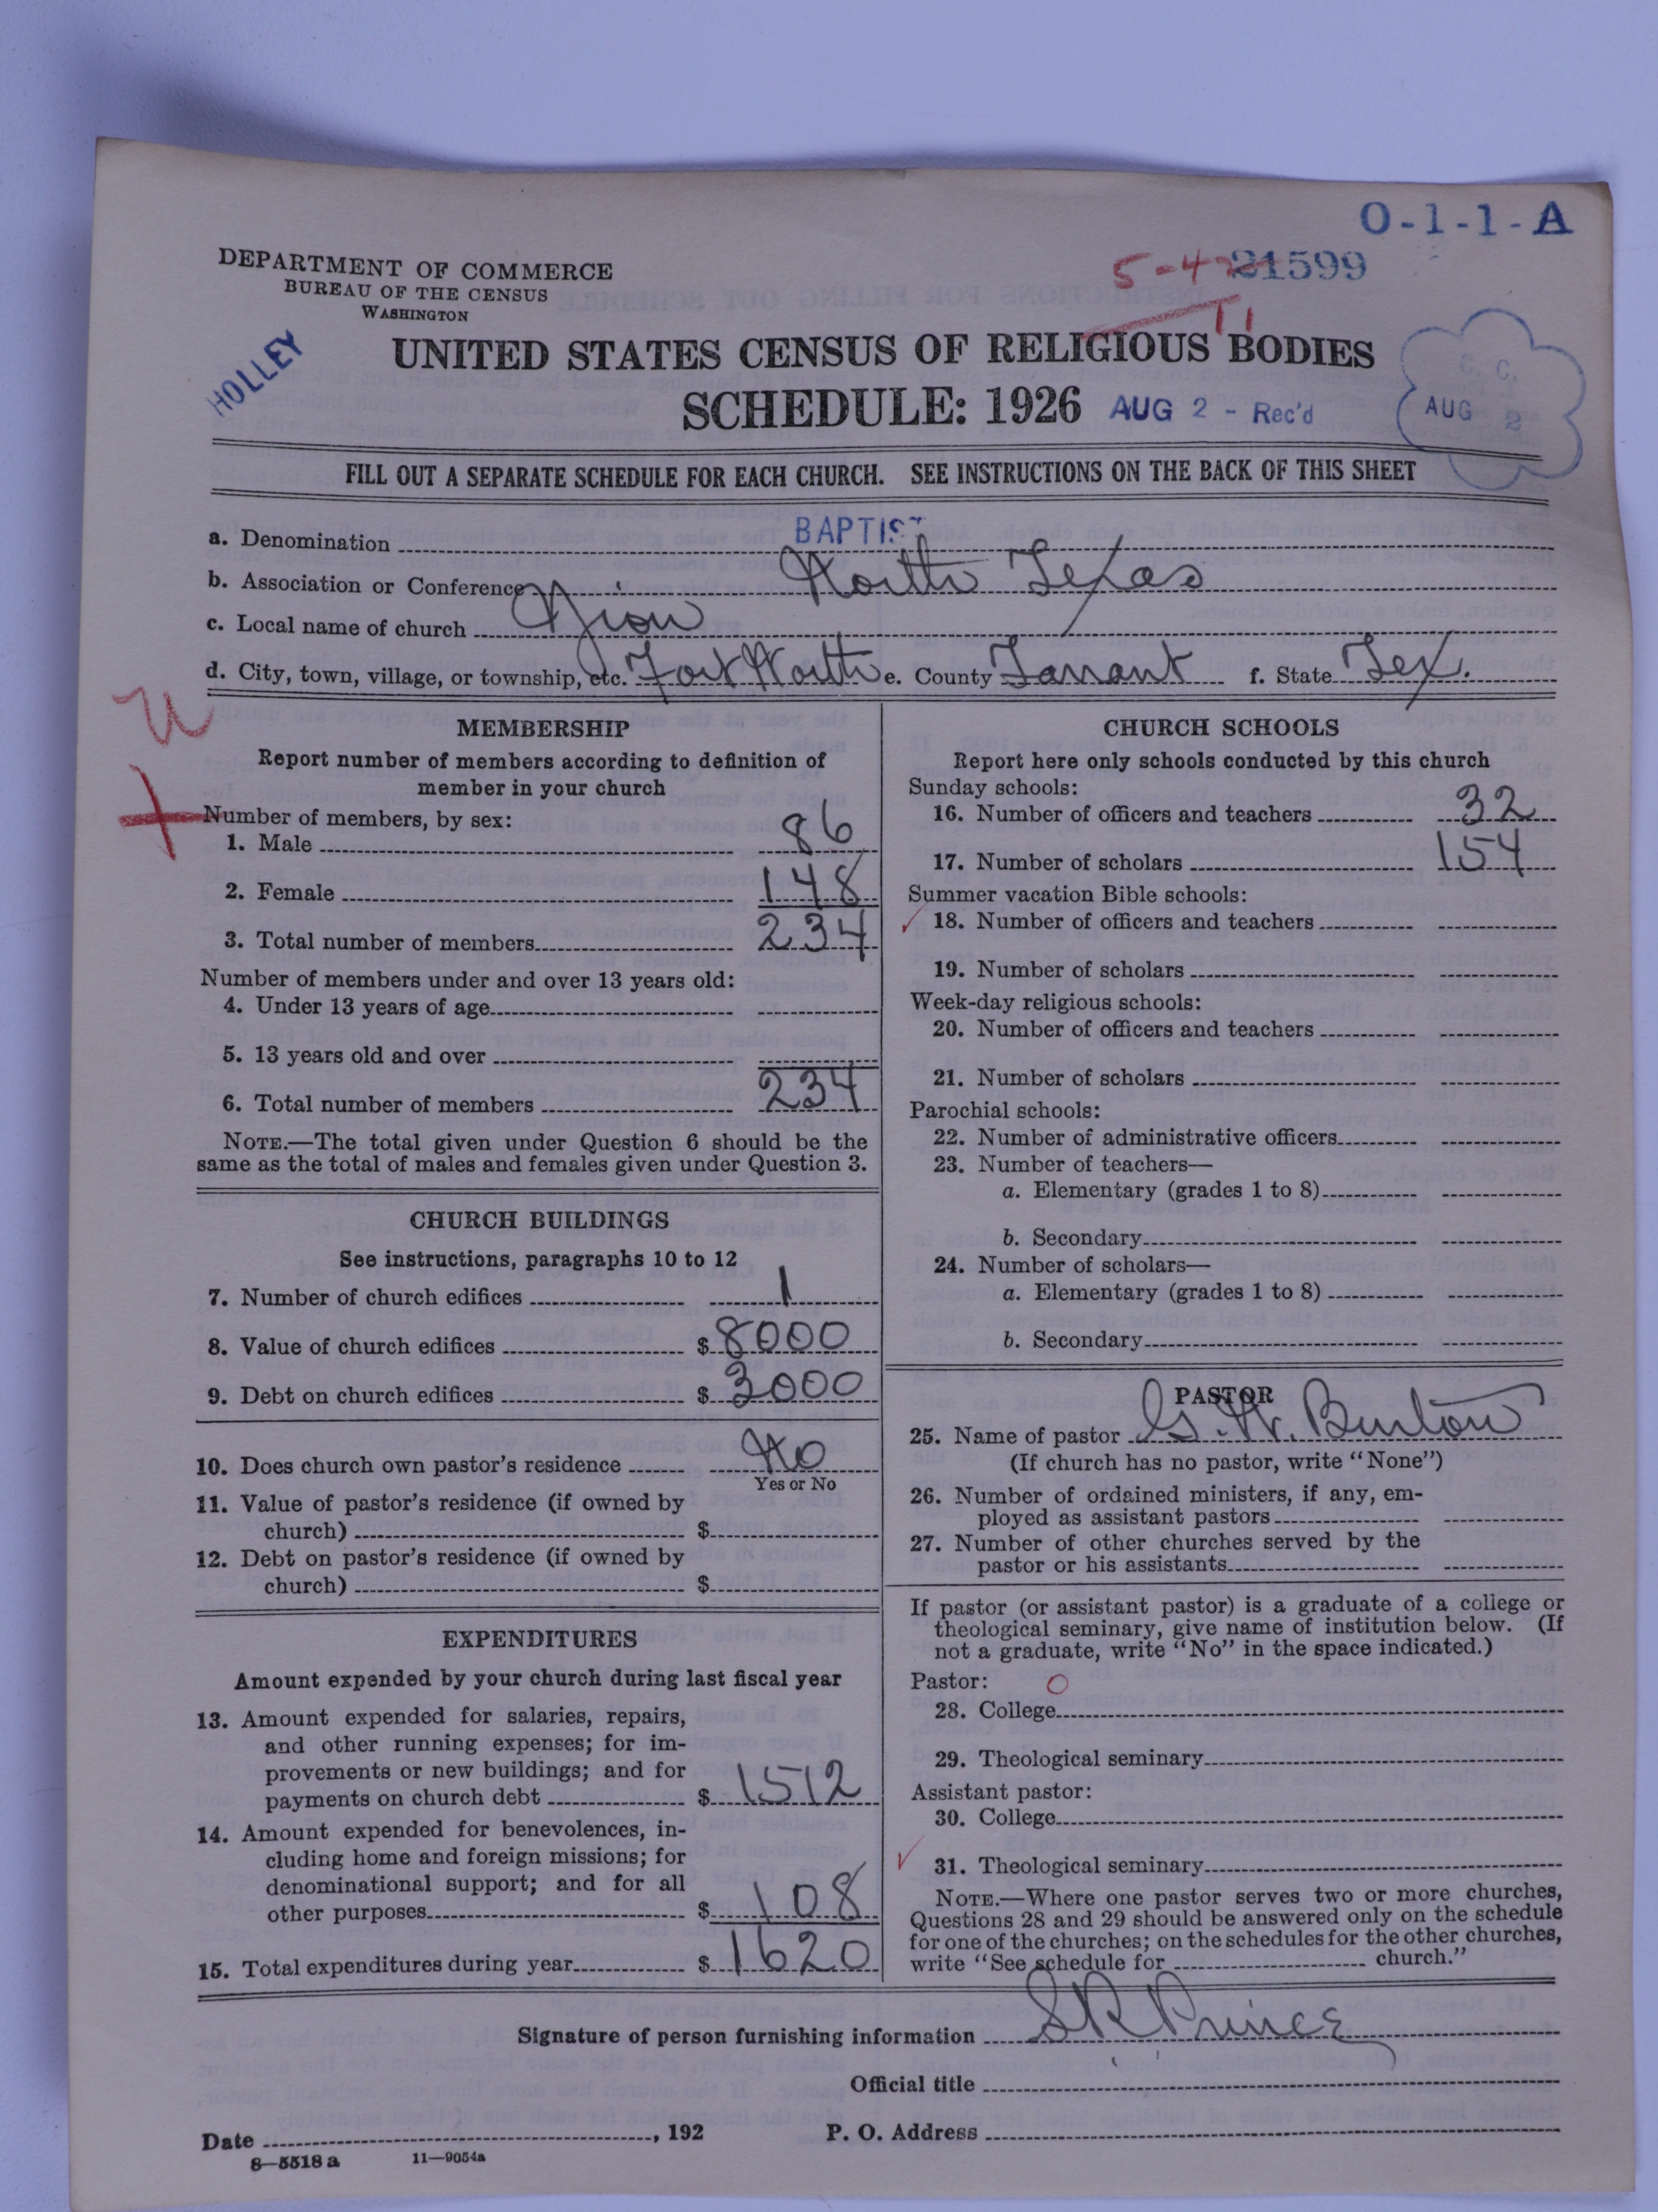 O-1-1-A
DEPARTMENT OF COMMERCE
BUREAU OF THE CENSUS
WASHINGTON
5-4 21599
T1
HOLLEY
UNITED STATES CENSUS OF RELIGIOUS BODIES
SCHEDULE: 1926 AUG 2 - Rec'd
C. C.
AUG 2
FILL OUT A SEPARATE SCHEDULE FOR EACH CHURCH. SEE INSTRUCTIONS ON THE BACK OF THIS SHEET
a. Denomination BAPTIST
b. Association or Conference North Texas
c. Local name of church Zion
d. City, town, village, or township, etc. Fort Worth e. County Tarrant f. State Tex.
U
MEMBERSHIP
Report number of members according to definition of
member in your church
Number of members, by sex:
1. Male 86
2. Female 148
3. Total number of members 234
Number of members under and over 13 years old:
4. Under 13 years of age
5. 13 years old and over
6. Total number of members 234
NOTE.—The total given under Question 6 should be the
same as the total of males and females given under Question 3.
CHURCH BUILDINGS
See instructions, paragraphs 10 to 12
7. Number of church edifices 1
8. Value of church edifices $ 8000
9. Debt on church edifices $ 3000
10. Does church own pastor's residence No
Yes or No
11. Value of pastor's residence (if owned by
church) $
12. Debt on pastor's residence (if owned by
church) $
EXPENDITURES
Amount expended by your church during last fiscal year
13. Amount expended for salaries, repairs,
and other running expenses; for im-
provements or new buildings; and for
payments on church debt $ 1512
14. Amount expended for benevolences, in-
cluding home and foreign missions; for
denominational support; and for all
other purposes $ 108
15. Total expenditures during year $ 1620
CHURCH SCHOOLS
Report here only schools conducted by this church
Sunday schools:
16. Number of officers and teachers 32
17. Number of scholars 154
Summer vacation Bible schools:
18. Number of officers and teachers
19. Number of scholars
Week-day religious schools:
20. Number of officers and teachers
21. Number of scholars
Parochial schools:
22. Number of administrative officers
23. Number of teachers—
a. Elementary (grades 1 to 8)
b. Secondary
24. Number of scholars—
a. Elementary (grades 1 to 8)
b. Secondary
PASTOR
25. Name of pastor G. W. Burton
(If church has no pastor, write "None")
26. Number of ordained ministers, if any, em-
ployed as assistant pastors
27. Number of other churches served by the
pastor or his assistants
If pastor (or assistant pastor) is a graduate of a college or
theological seminary, give name of institution below. (If
not a graduate, write "No" in the space indicated.)
Pastor: O
28. College
29. Theological seminary
Assistant pastor:
30. College
31. Theological seminary
NOTE.—Where one pastor serves two or more churches,
Questions 28 and 29 should be answered only on the schedule
for one of the churches; on the schedules for the other churches,
write "See schedule for church."
Signature of person furnishing information S R Prince
Official title
Date , 192 P. O. Address
8—5518 a 11—9054a